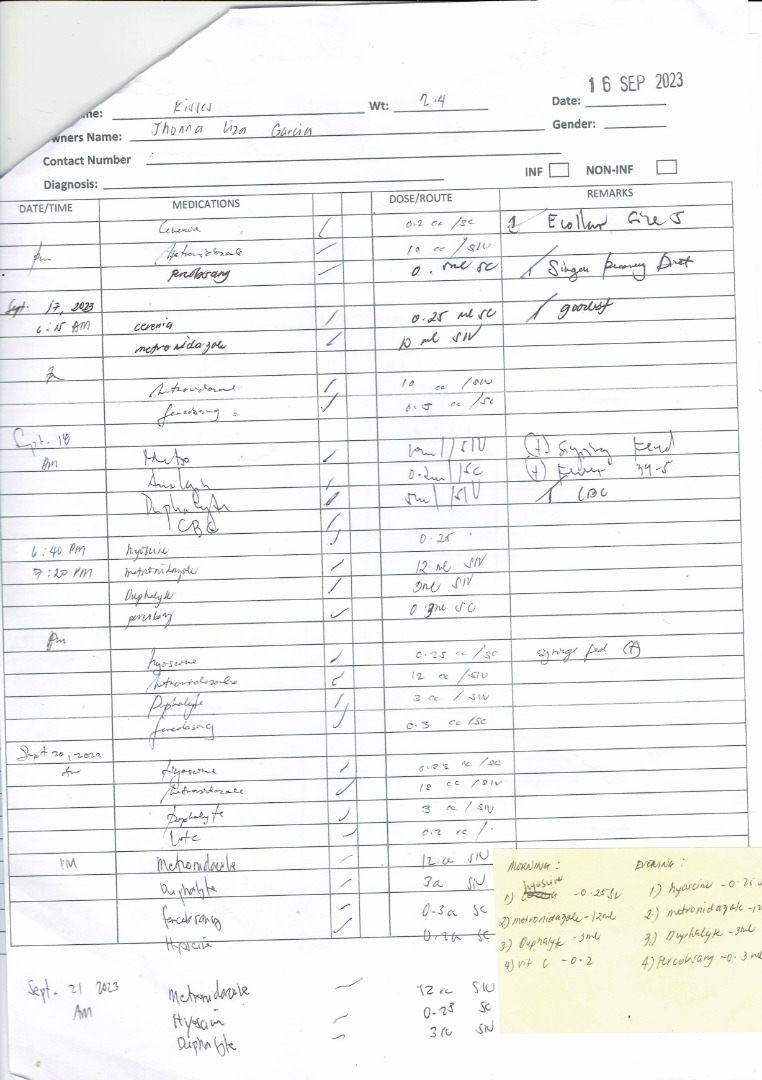 16 SEP 2023
me: Kisses Wt: 2.4 Date:
wners Name: Jhonna Liza Garcia Gender:
Contact Number
INF NON-INF
Diagnosis:
DATE/TIME MEDICATIONS DOSE/ROUTE REMARKS
Cerenia 0.2 cc /SC 1 Ecollar Size 5
pm Metronidazole 10 cc /SIV
0.5ml SC
Sept. 17, 2023 goodest
6:15 AM cerenia 0.25 ml SC
metronidazole 10 ml SIV
10 cc /SIV
0.5 cc /SC
Sept. 18
AM Metro 10ml/SIV
/SC (+) Fever 39.5
Duphalyte 5ml/SIV 1 CBC
CBC
6:40 PM hyoscine 0.25
7:20 PM metronidazole 12 ml SIV
Duphalyte 3ml SIV
0.3ml SC
Pm
hyoscine 0.25 cc /SC syringe fed (+)
metronidazole 12 cc /SIV
Duphalyte 3 cc / SIV
fercobsang 0.3 cc /SC
Sept 20, 2023
Hyoscine 0.25 cc /SC
Metronidazole 12 cc /SIV
Duphalyte 3 cc /SIV
Vit C 0.2 cc /
PM Metronidazole 12 cc SIV
Duphalyte 3cc SIV
fercobsang 0.3cc SC
Hyoscin SC
Sept. 21 2023 Metronidazole 12 cc SIV
AM Hyoscin 0.25 SC
Duphalyte 3cc SIV
MORNING :
1) hyoscine - 0.25
2) metronidazole - 12ml
3) Duphalyte - 3ml
4) vit C - 0.2
EVENING :
1) hyoscine - 0.25
2) metronidazole - 12
3) Duphalyte - 3ml
4) Fercobsang - 0.3 ml